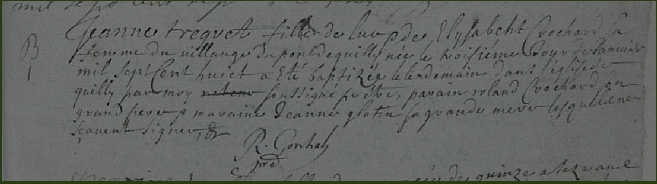 mil sept cent
B
Jeanne treguet fille de luy & de Elysabeht Crochard sa
femme du village du pont de quilly née le troisiéme Jour de Janvier
mil sept Cent huict a Eté baptizée le lendemain dans l'eglise de
quilly par moy soussigné prêtre, parain roland Crochard son
grand pere & maraine Jeanne glotin sa grande mere lesquels ne
sçavent signer, &
R. Gonhay
ptre
de quinze